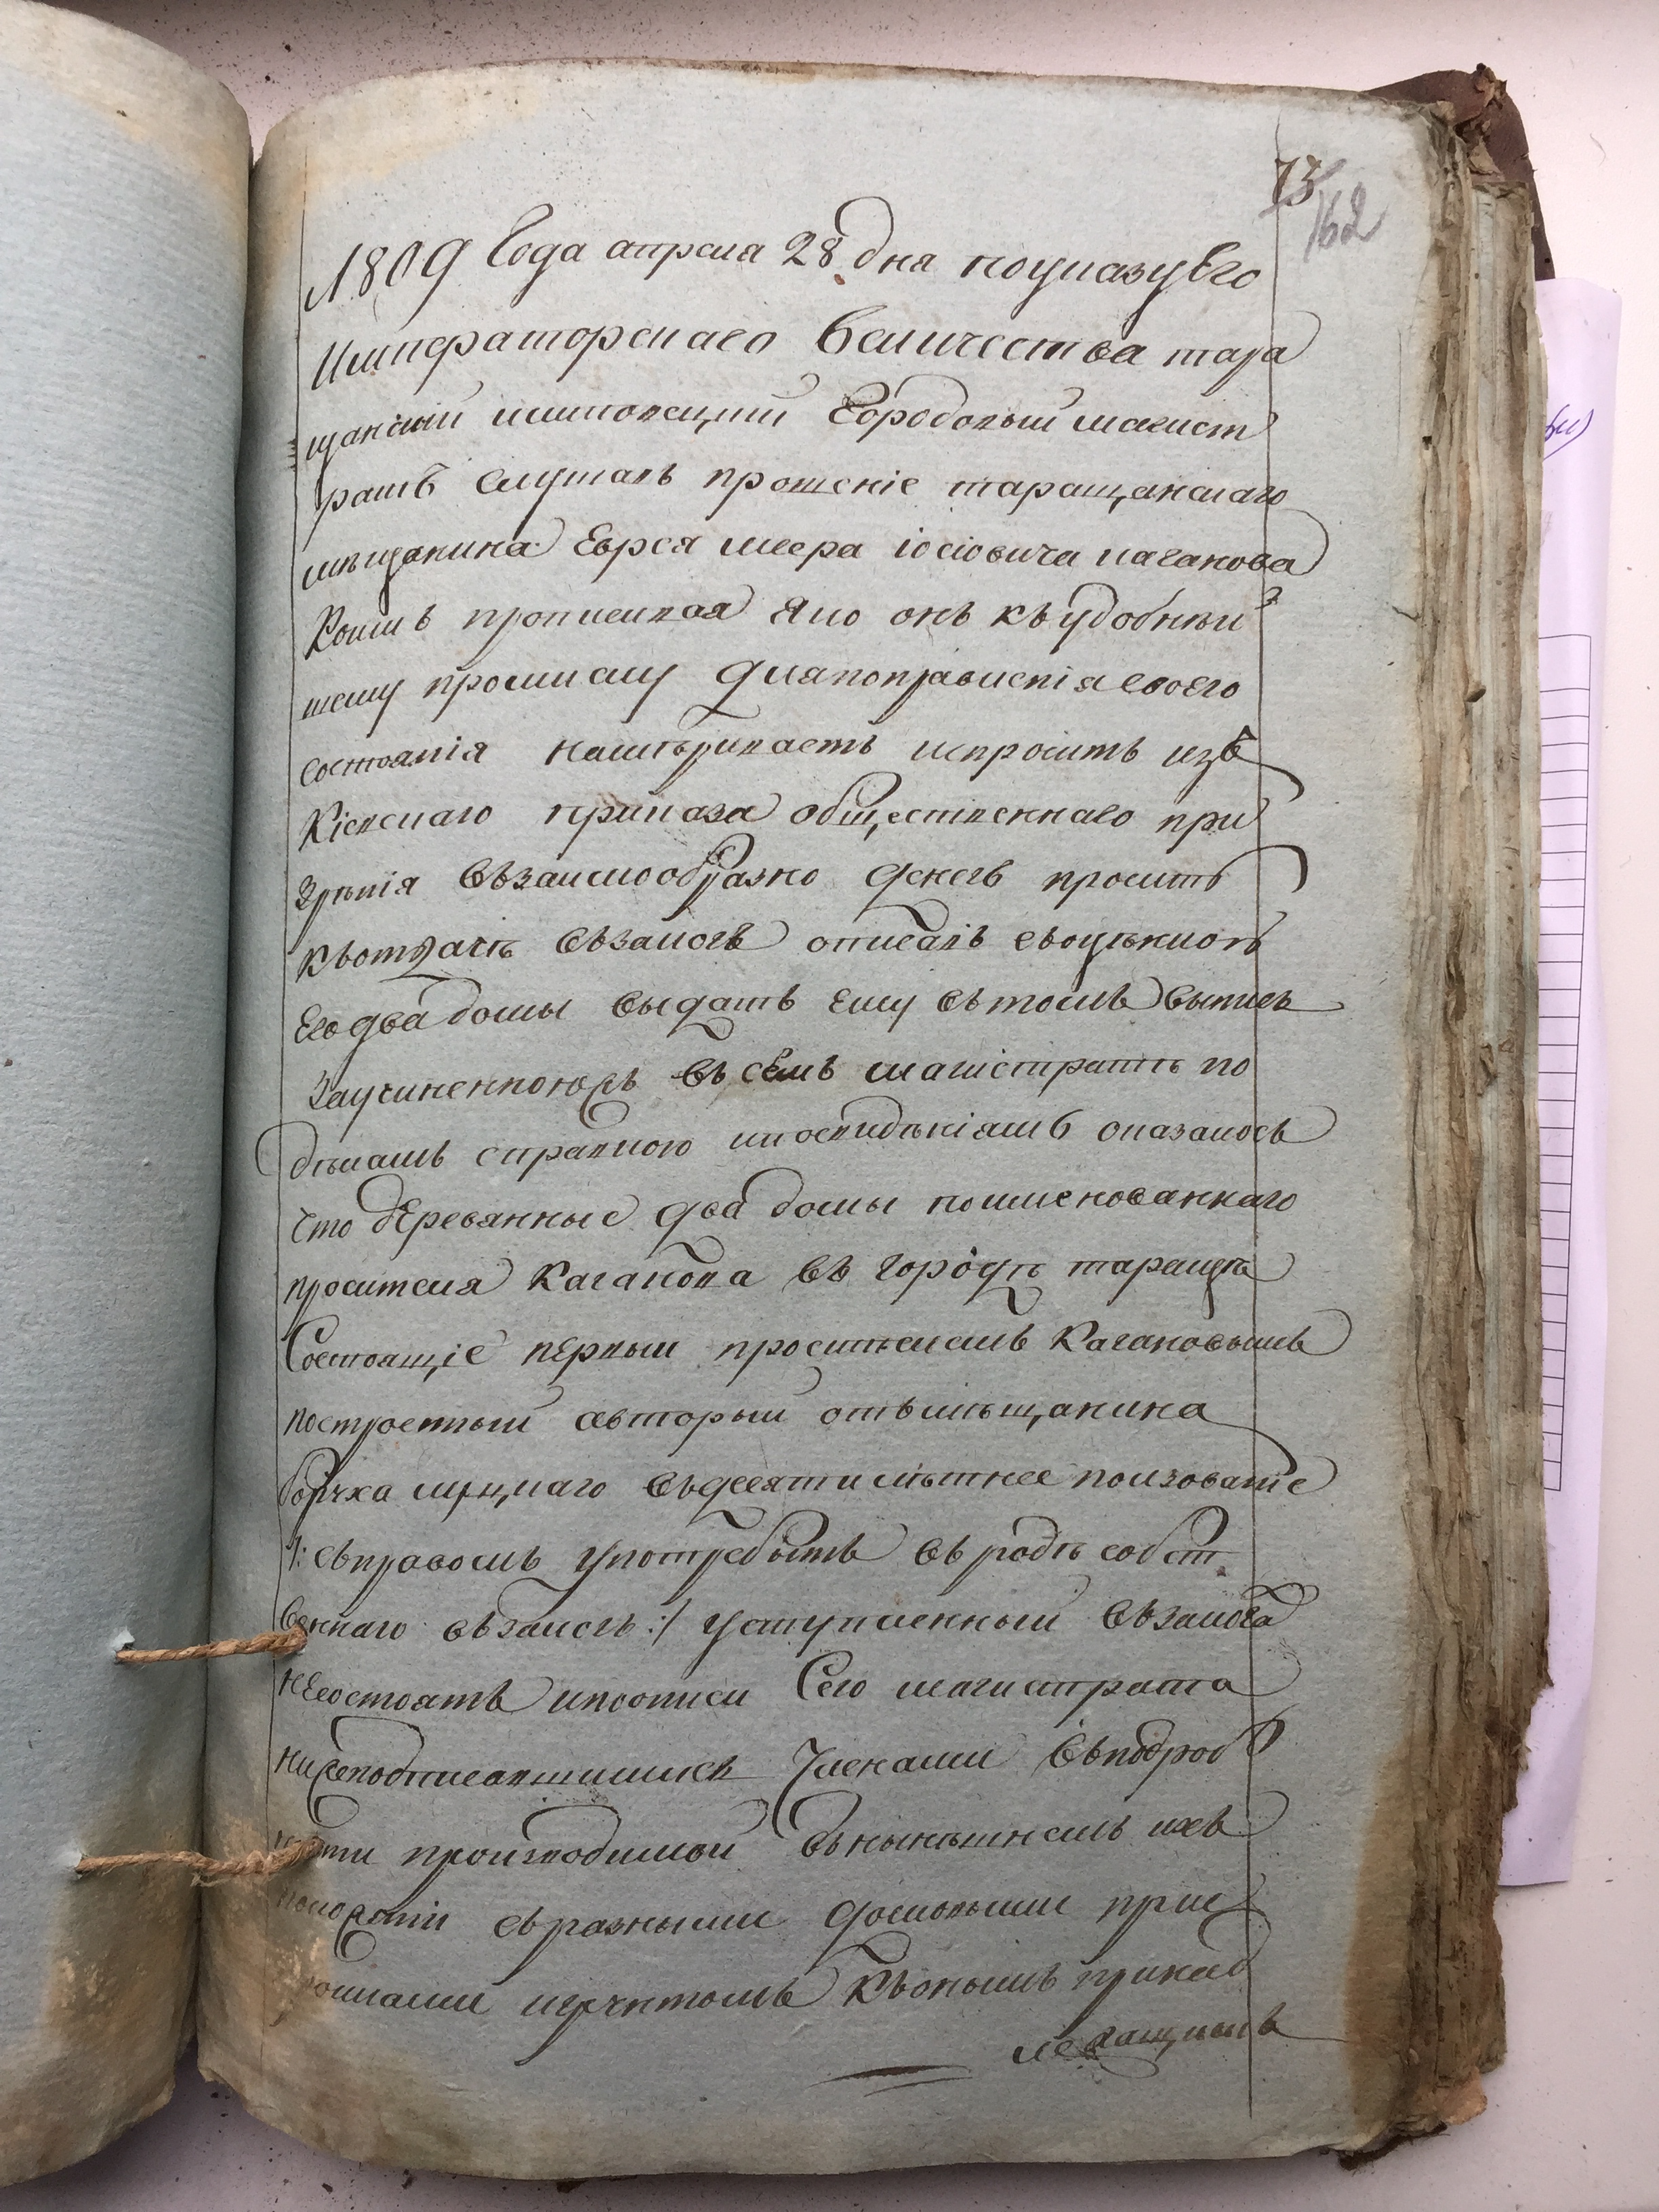 73
162
1809 Года апреля 28 дня поуказу Его
Императорскаго Величества тара
щанский исполняющий Городовый магист
ратъ Слушалъ прошение таращанскаго
мѣщанина Еврея меера іосіовича каганова
Коимъ прописывая яко онъ къ удобнѣй
шему промыслу дляпоправленія своего
состоянія намѣриваетъ испросить изъ
Кіевскаго приказа общественнаго при
зрѣнія Взаимообразно денегъ просить
къотдачѣ Взалогъ описавъ своцѣнкою
Его два домы выдать Ему втомъ выпись
Заучиненноюжъ въ семъ магістратѣ по
дѣламъ справкою ипосвидѣніямъ оказалось
Что деревянные два домы поименованнаго
просителя Каганова въ городѣ таращѣ
Состоящіе первый просителемъ Кагановымъ
построенный авторый отъмѣщанина
въдесятилѣтнее ползованіе
/: съправомъ употребить въ родѣ собст
веннаго взалогъ :/ уступленный Взалогѣ
неСостоятъ ипоописи Сего магистрата
нижеподписавшимись Членами Вподроб
ности произведимой вънынѣшнемъ ихъ
положеніи съразными домовыми прис
тройками исъчетомъ Къонымъ принад
лежащимъ